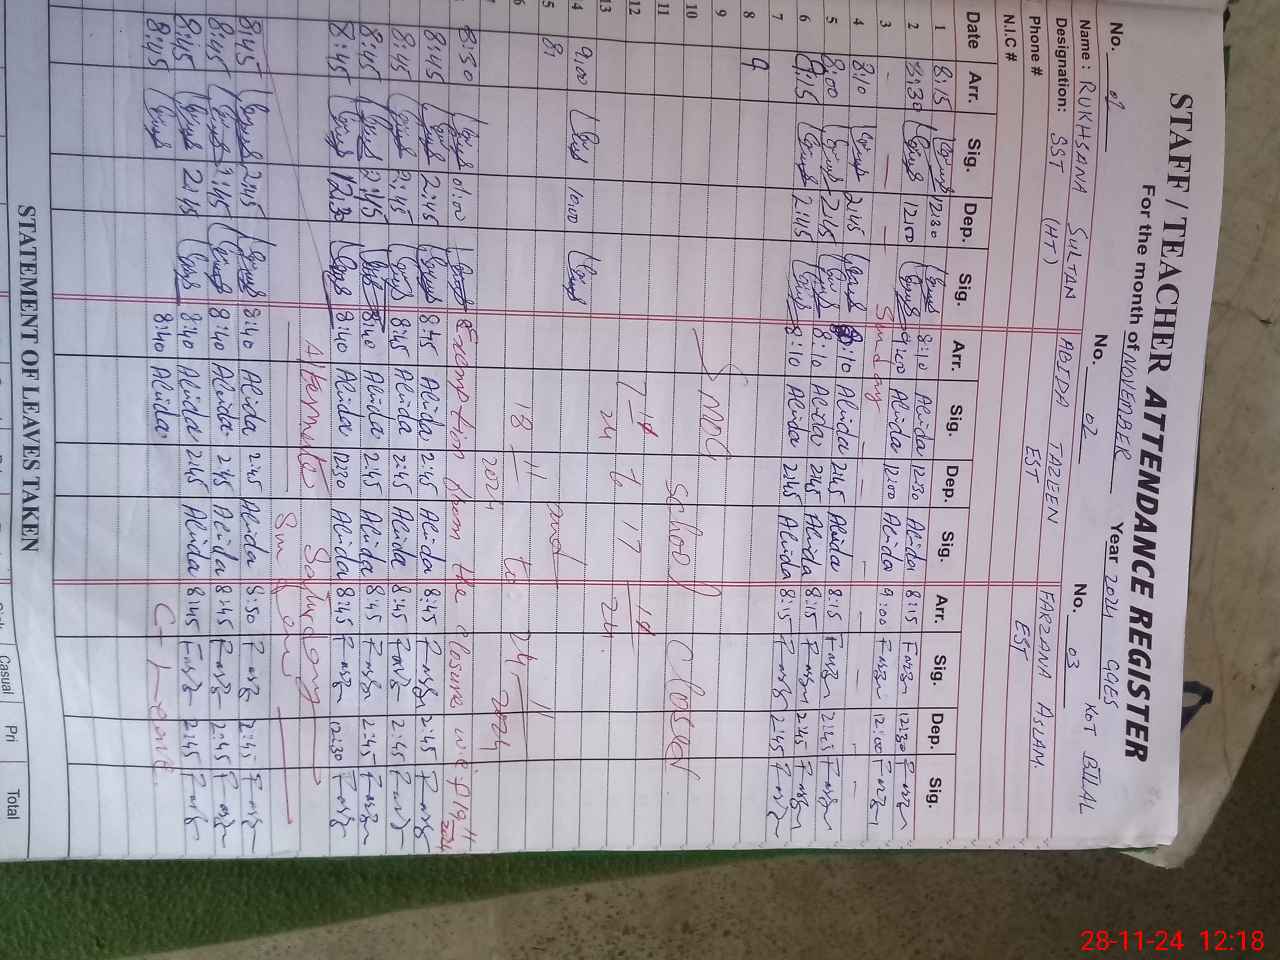 STAFF / TEACHER ATTENDANCE REGISTER
For the month of NOVEMBER Year 2024 GGES KOT BILAL
No. 01 No. 02 No. 03
Name: RUKHSANA SULTAN ABIDA TAZEEN FARZANA ASLAM.
Designation: SST (HT) EST EST
Phone #
N.I.C #
Date Arr. Sig. Dep. Sig. Arr. Sig. Dep. Sig. Arr. Sig. Dep. Sig.
1 8:15 12:30 8:10 Abida 12:30 Abida 8:15 Farzn 12:30 Farzn
2 8:30 12:00 9:40 Abida 12:00 Abida 9:00 Farzn 12:00 Farzn
3 - - - Sunday - - - - -
4 8:10 2:45 8:10 Abida 2:45 Abida 8:15 Farzn 2:45 Farzn
5 8:00 2:45 8:10 Abida 2:45 Abida 8:15 Farzn 2:45 Farzn
6 8:15 2:45 8:10 Abida 2:45 Abida 8:15 Farzn 2:45 Farzn
7
8 9
9
10 SMOG School Closed
11
12 7-11/24 to 17 11/24.
13
14 9:00 10:00
15 8: and
16 18 11/2024 to 24 11/2024
8:50 01:00 Exemption from the closure w.e.f 19 11/2024
8:45 2:45 8:45 Abida 2:45 Abida 8:45 Farzn 2:45 Farzn
8:45 2:45 8:45 Abida 2:45 Abida 8:45 Farzn 2:45 Farzn
8:45 2:45 8:40 Abida 2:45 Abida 8:45 Farzn 2:45 Farzn
8:45 12:30 8:40 Abida 12:30 Abida 8:45 Farzn 12:30 Farzn
Alternate Saturday
Sunday
8:45 2:45 8:40 Abida 2:45 Abida 8:50 Farzn 2:45 Farzn
8:45 2:45 8:40 Abida 2:45 Abida 8:45 Farzn 2:45 Farzn
8:45 2:45 8:40 Abida 2:45 Abida 8:45 Farzn 2:45 Farzn
8:45 8:40 Abida C-Leave
STATEMENT OF LEAVES TAKEN
Casual Pri Total
28-11-24 12:18